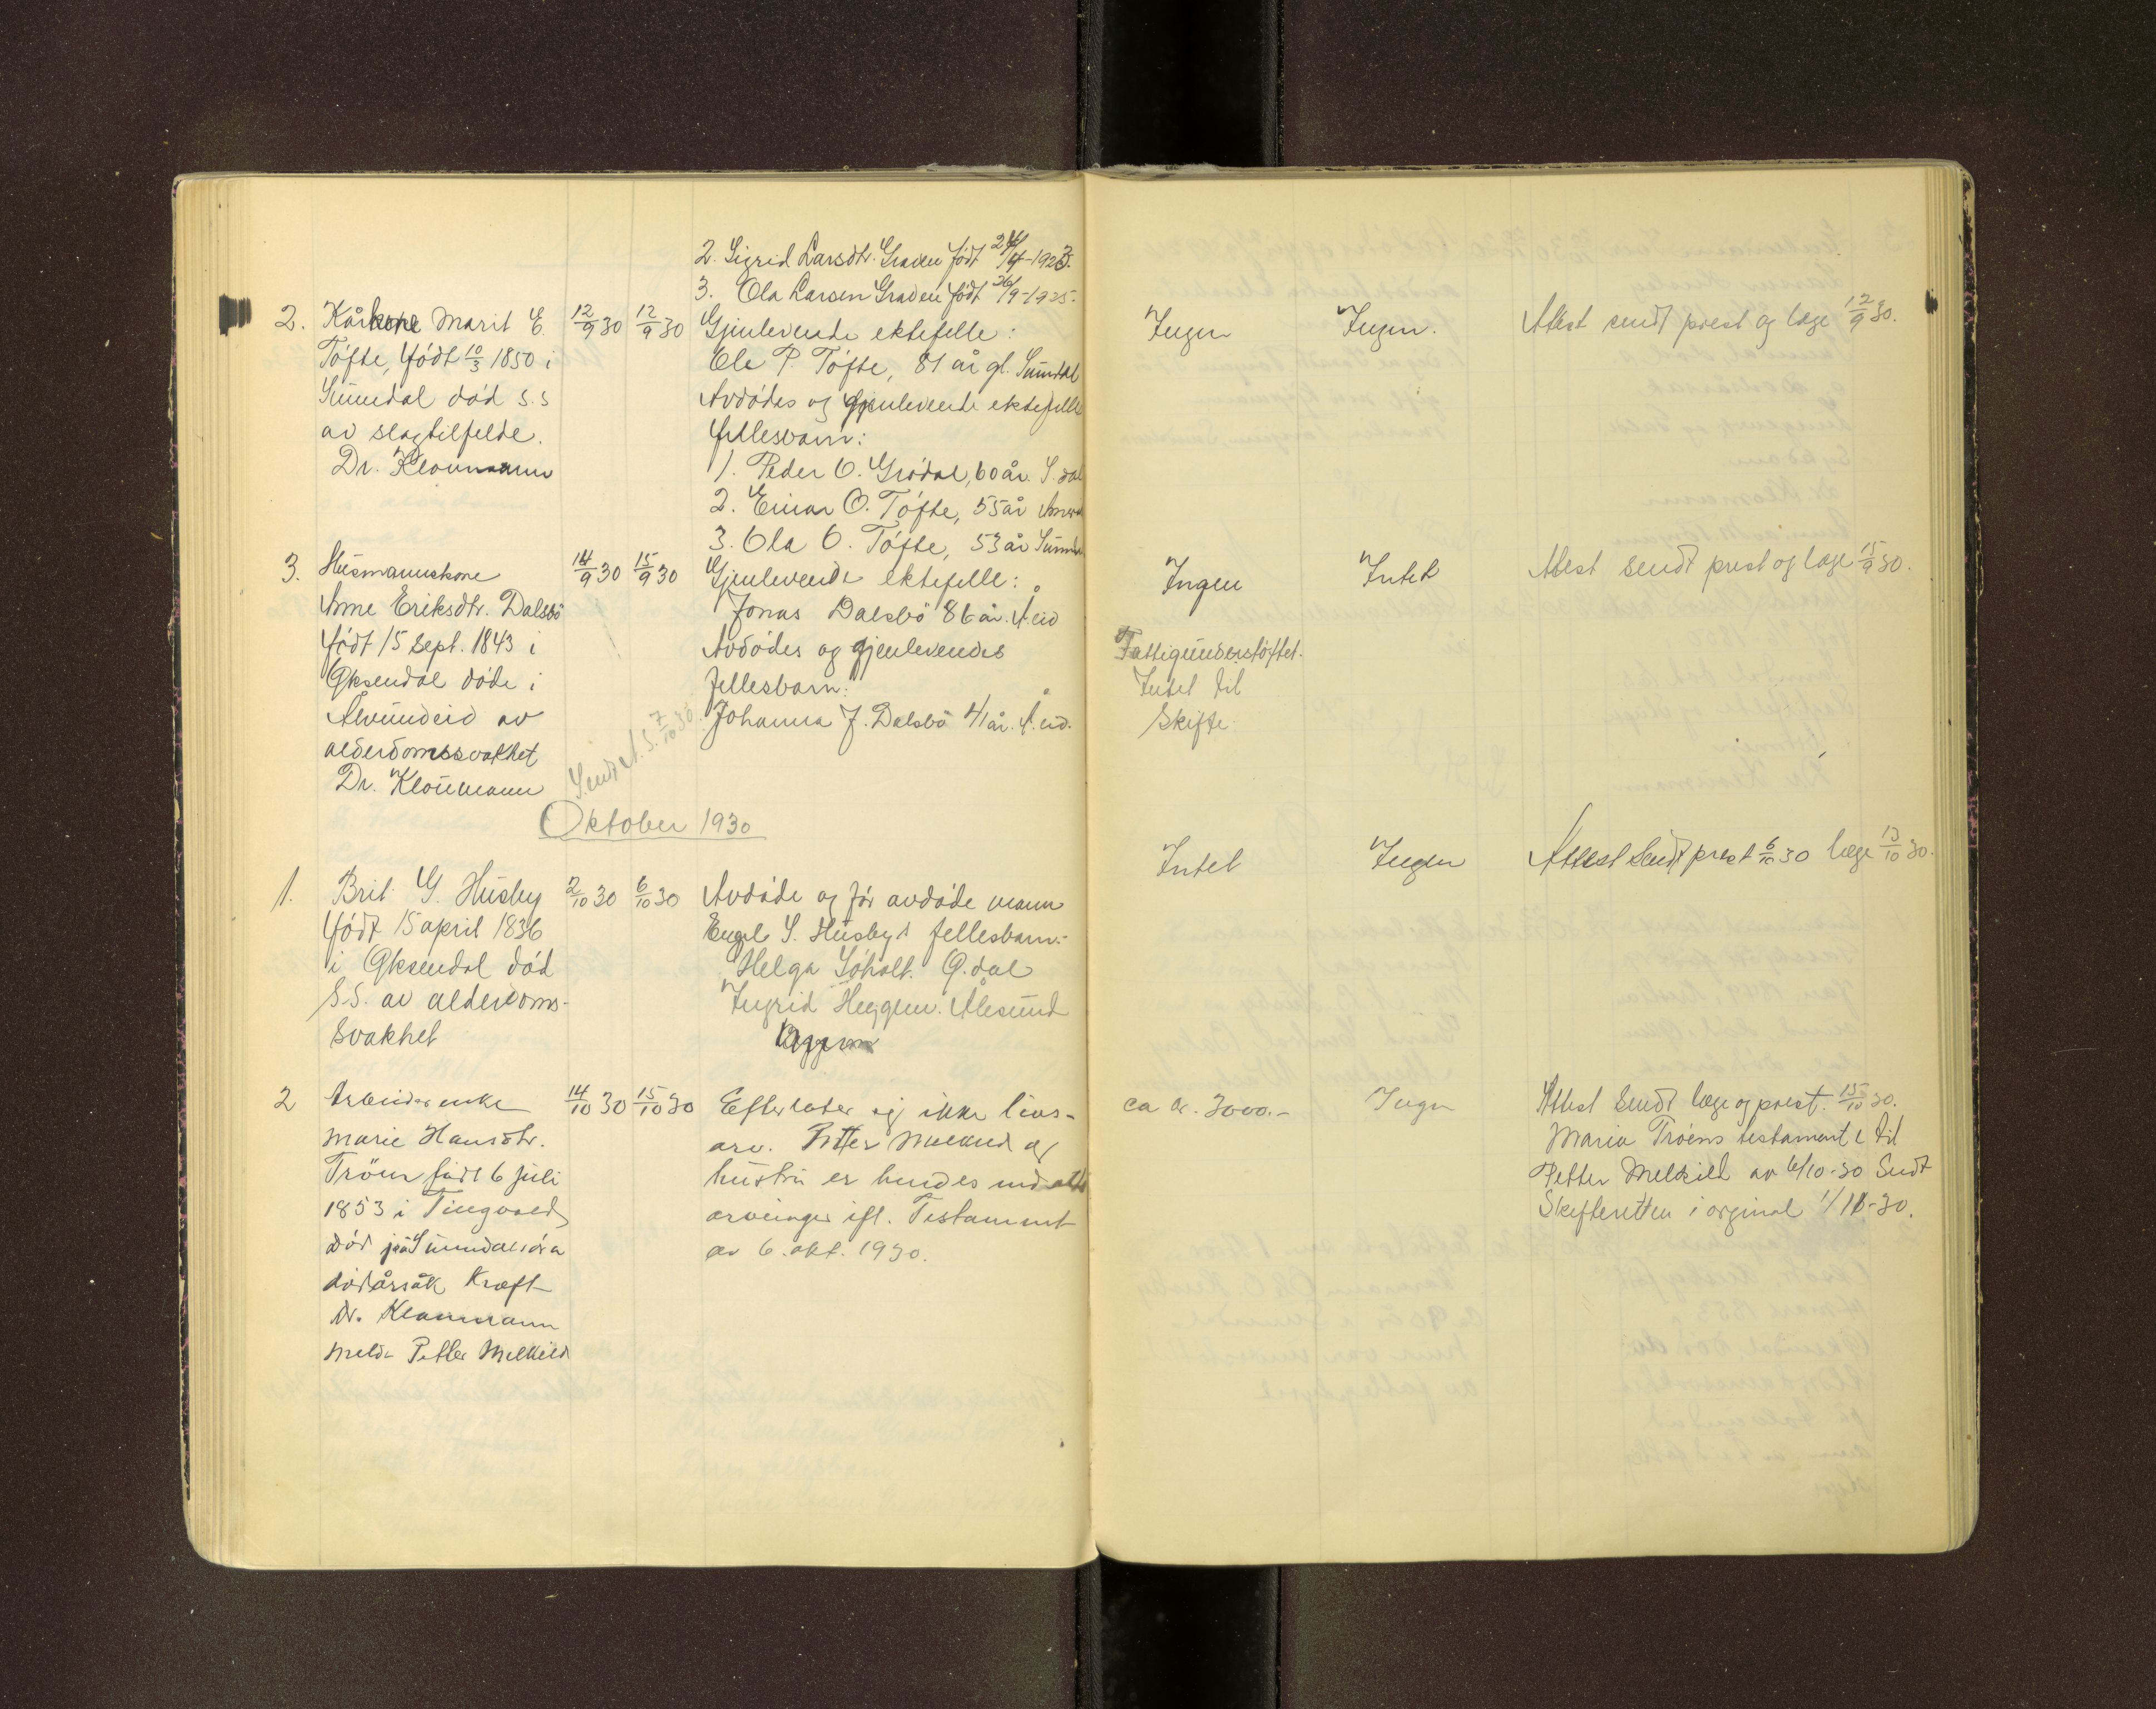 2. Sigrid Larsdtr. Graven født 24/4-1923.
3. Ola Larsen Graven født 26/9-1925.
2. Kårkone Marit E. 12/9 30 12/9 30 Gjenlevende ektefelle: Ingen Ingen. Attest sendt prest og læge 12/9 30.
Tøfte, født 10/3 1850 i Ole P. Tøfte, 81 år gl. Sunndal
Sunndal død s.s Avdødes og gjenlevende ektefelle
av slagtilfelde. fellesbarn:
Dr. Kloumann 1. Peder O. Grødal, 60 år. S.dal
2. Einar O. Tøfte, 55 år
3. Ola O. Tøfte, 53 år
3. Husmannskone 14/9 30 15/9 30 Gjenlevende ektefelle: Ingen Intet Attest sendt prest og læge 15/9 30.
Anne Eriksdtr. Dalsbö Jonas Dalsbö 86 år. Å.eid
født 15 sept. 1843 i Avdødes og gjenlevendes Fattigunderstøttet.
Øksendal døde i fellesbarn: Intet til
Ålvundeid av Johanna J. Dalsbö 41 år. Å.eid. Skifte
alderdomssvakhet
Dr. Kloumann Sendt 7/10 30.
Oktober 1930
1. Brit G. Husby 2/10 30 6/10 30 Avdøde og før avdøde mann Intet Ingen Attest Sendt prest 6/10 30 læge 13/10 30.
født 15 april 1836 S. Husbys fellesbarn:
i Øksendal død Helga Söholt. Ø.dal
S.S. av alderdoms- Ingrid Heggem. Ålesund
svakhet
2 Arbeiderenke 14/10 30 15/10 30 Efterlater sig ikke livs- ca kr. 3000.- Ingen Attest Sendt læge og prest. 15/10 30.
Marie Hansdtr. arv. Petter Melkild og Maria Trøens testament til
Tröen født 6 juli hustru er hendes Petter Melkild av 6/10-30 Sendt
1853 i Tingvold arvinger ifl. Testament Skifteretten i orginal 1/11-30.
död på Sunndalsöra av 6. okt. 1930.
dødsårsak Kræft
Dr. Kloumann
Meldt Petter Melkild